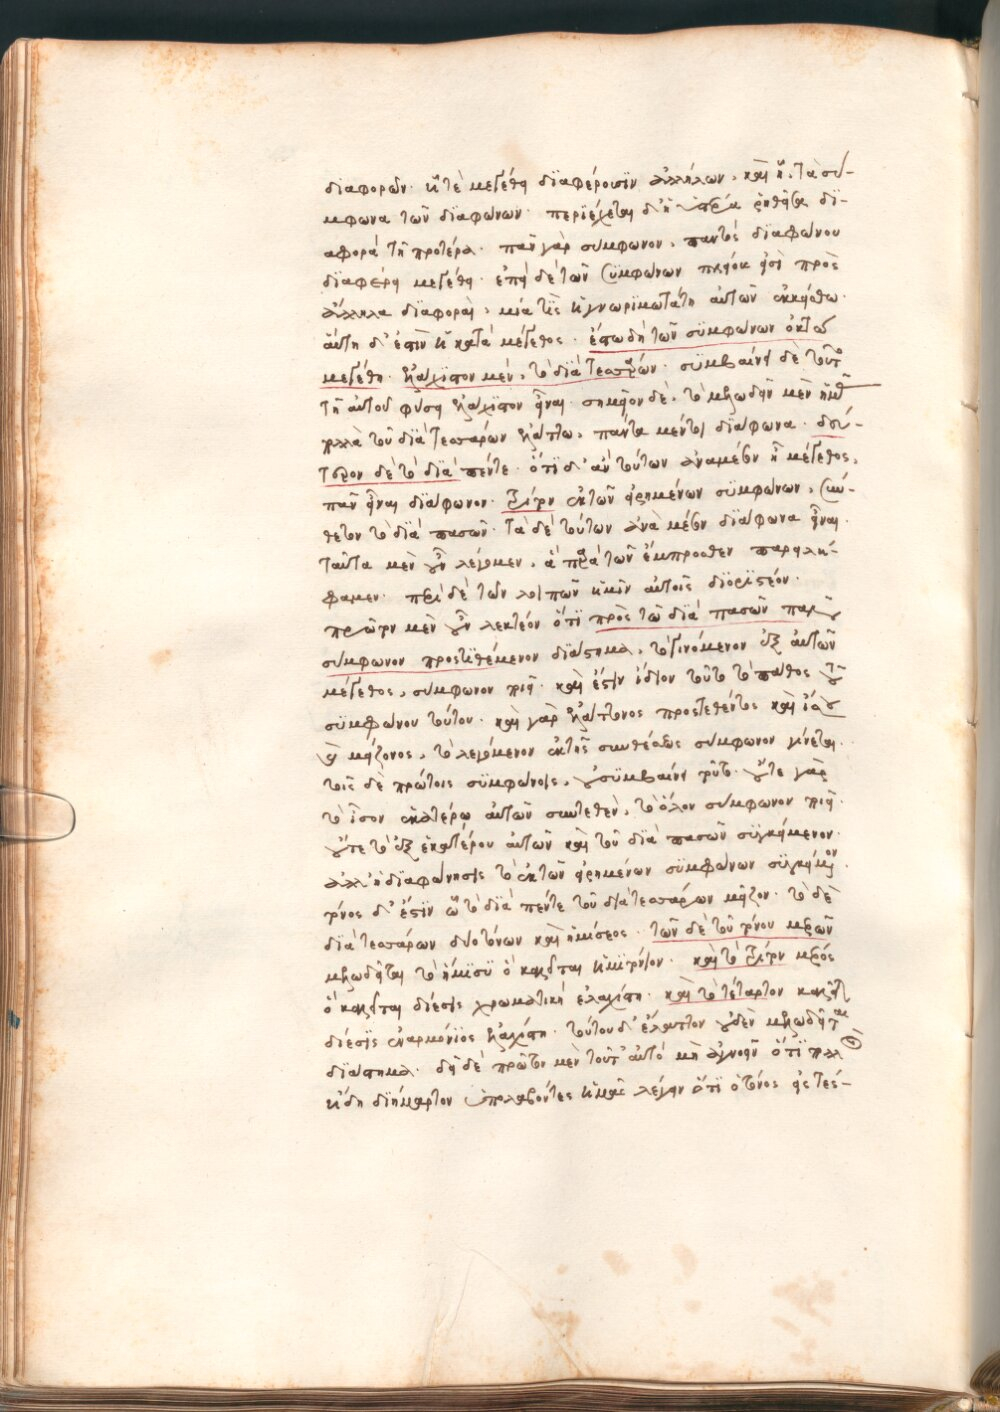 διαφορῶν· ἥ τε μεγέθη διαφέρουσιν ἀλλήλων, καὶ ᾗ τὰ σύ-
μφωνα τῶν διαφώνων· περιέχεται δ' ἡ ὑστέρα ῥηθεῖσα δι-
αφορὰ τῇ προτέρᾳ· πᾶν γὰρ σύμφωνον, παντὸς διαφώνου
διαφέρει μεγέθει· ἐπεὶ δὲ τῶν συμφώνων πλείους εἰσὶ πρὸς
ἄλληλα διαφοραὶ, μία τις ἡ γνωριμωτάτη αὐτῶν ἐκκείσθω·
αὕτη δ' ἐστὶν ἡ κατὰ μέγεθος· ἔστω δὴ τῶν συμφώνων ὀκτὼ
μεγέθη· ἐλάχιστον μὲν, τὸ διὰ τεσσάρων· συμβαίνει δὲ τοῦτο
τῇ αὐτοῦ φύσει ἐλάχιστον εἶναι· σημεῖον δὲ, τὸ μελῳδεῖν μὲν ἡμᾶς
πολλὰ τοῦ διὰ τεσσάρων ἐλάττω, πάντα μέντοι διάφωνα· δεύ-
τερον δὲ τὸ διὰ πέντε· ὅτι δ' ἂν τούτων ἀναμέσον ᾖ μέγεθος,
πᾶν εἶναι διάφωνον· τρίτον ἐκ τῶν εἰρημένων συμφώνων, σύν-
θετον τὸ διὰ πασῶν· τὰ δὲ τούτων ἀνὰ μέσον διάφωνα εἶναι·
ταῦτα μὲν οὖν λέγομεν, ἃ παρὰ τῶν ἔμπροσθεν παρειλή-
φαμεν· περὶ δὲ τῶν λοιπῶν ἡμῖν αὐτοῖς διοριστέον·
πρῶτον μὲν οὖν λεκτέον ὅτι πρὸς τῷ διὰ πασῶν πᾶν
σύμφωνον προστιθέμενον διάστημα, τὸ γινόμενον ἐξ αὐτῶν
μέγεθος, σύμφωνον ποιεῖ· καὶ ἔστιν ἴδιον τοῦτο τὸ πάθος τοῦ
συμφώνου τούτου· καὶ γὰρ ἐλάττονος προστεθέντος καὶ ἴσου
καὶ μείζονος, τὸ λεγόμενον ἐκ τῆς συνθέσεως σύμφωνον γίνεται·
τοῖς δὲ πρώτοις συμφώνοις, οὐ συμβαίνει τοῦτο· οὔτε γὰρ
τὸ ἴσον ἑκατέρῳ αὐτῶν συντεθὲν, τὸ ὅλον σύμφωνον ποιεῖ·
οὔτε τὸ ἐξ ἑκατέρου αὐτῶν καὶ τοῦ διὰ πασῶν συγκείμενον·
ἀλλ' ἢ διαφωνήσει τὸ ἐκ τῶν εἰρημένων συμφώνων συγκείμενον·
τόνος δ' ἐστὶν ᾧ τὸ διὰ πέντε τοῦ διὰ τεσσάρων μεῖζον· τὸ δὲ
διὰ τεσσάρων δυο τόνων καὶ ἡμίσεος· τῶν δὲ τοῦ τόνου μερῶν
μελῳδεῖται τὸ ἥμισυ ὃ καλεῖται ἡμιτόνιον· καὶ τὸ τρίτον μέρος
ὃ καλεῖται δίεσις χρωματικὴ ἐλαχίστη· καὶ τὸ τέταρτον καλεῖται
δίεσις ἐναρμόνιος ἐλαχίστη· τούτου δ' ἔλαττον οὐδὲν μελῳδεῖται
διάστημα· δεῖ δὲ πρῶτον μὲν τοῦτ' αὐτὸ μὴ ἀγνοεῖν ὅτι πολλοὶ
ἤδη διήμαρτον ὑπολαβόντες ἡμᾶς λέγειν ὅτι ὁ τόνος εἰς τέσ-